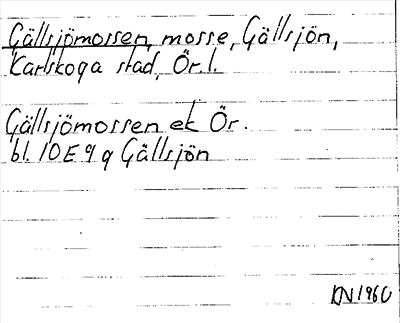 Gällsjömossen, mosse, Gällsjön,
Karlskoga stad, Ör.l.
Gällsjömossen ek Ör.
bl. 10E 9 g Gällsjön
KN 1960